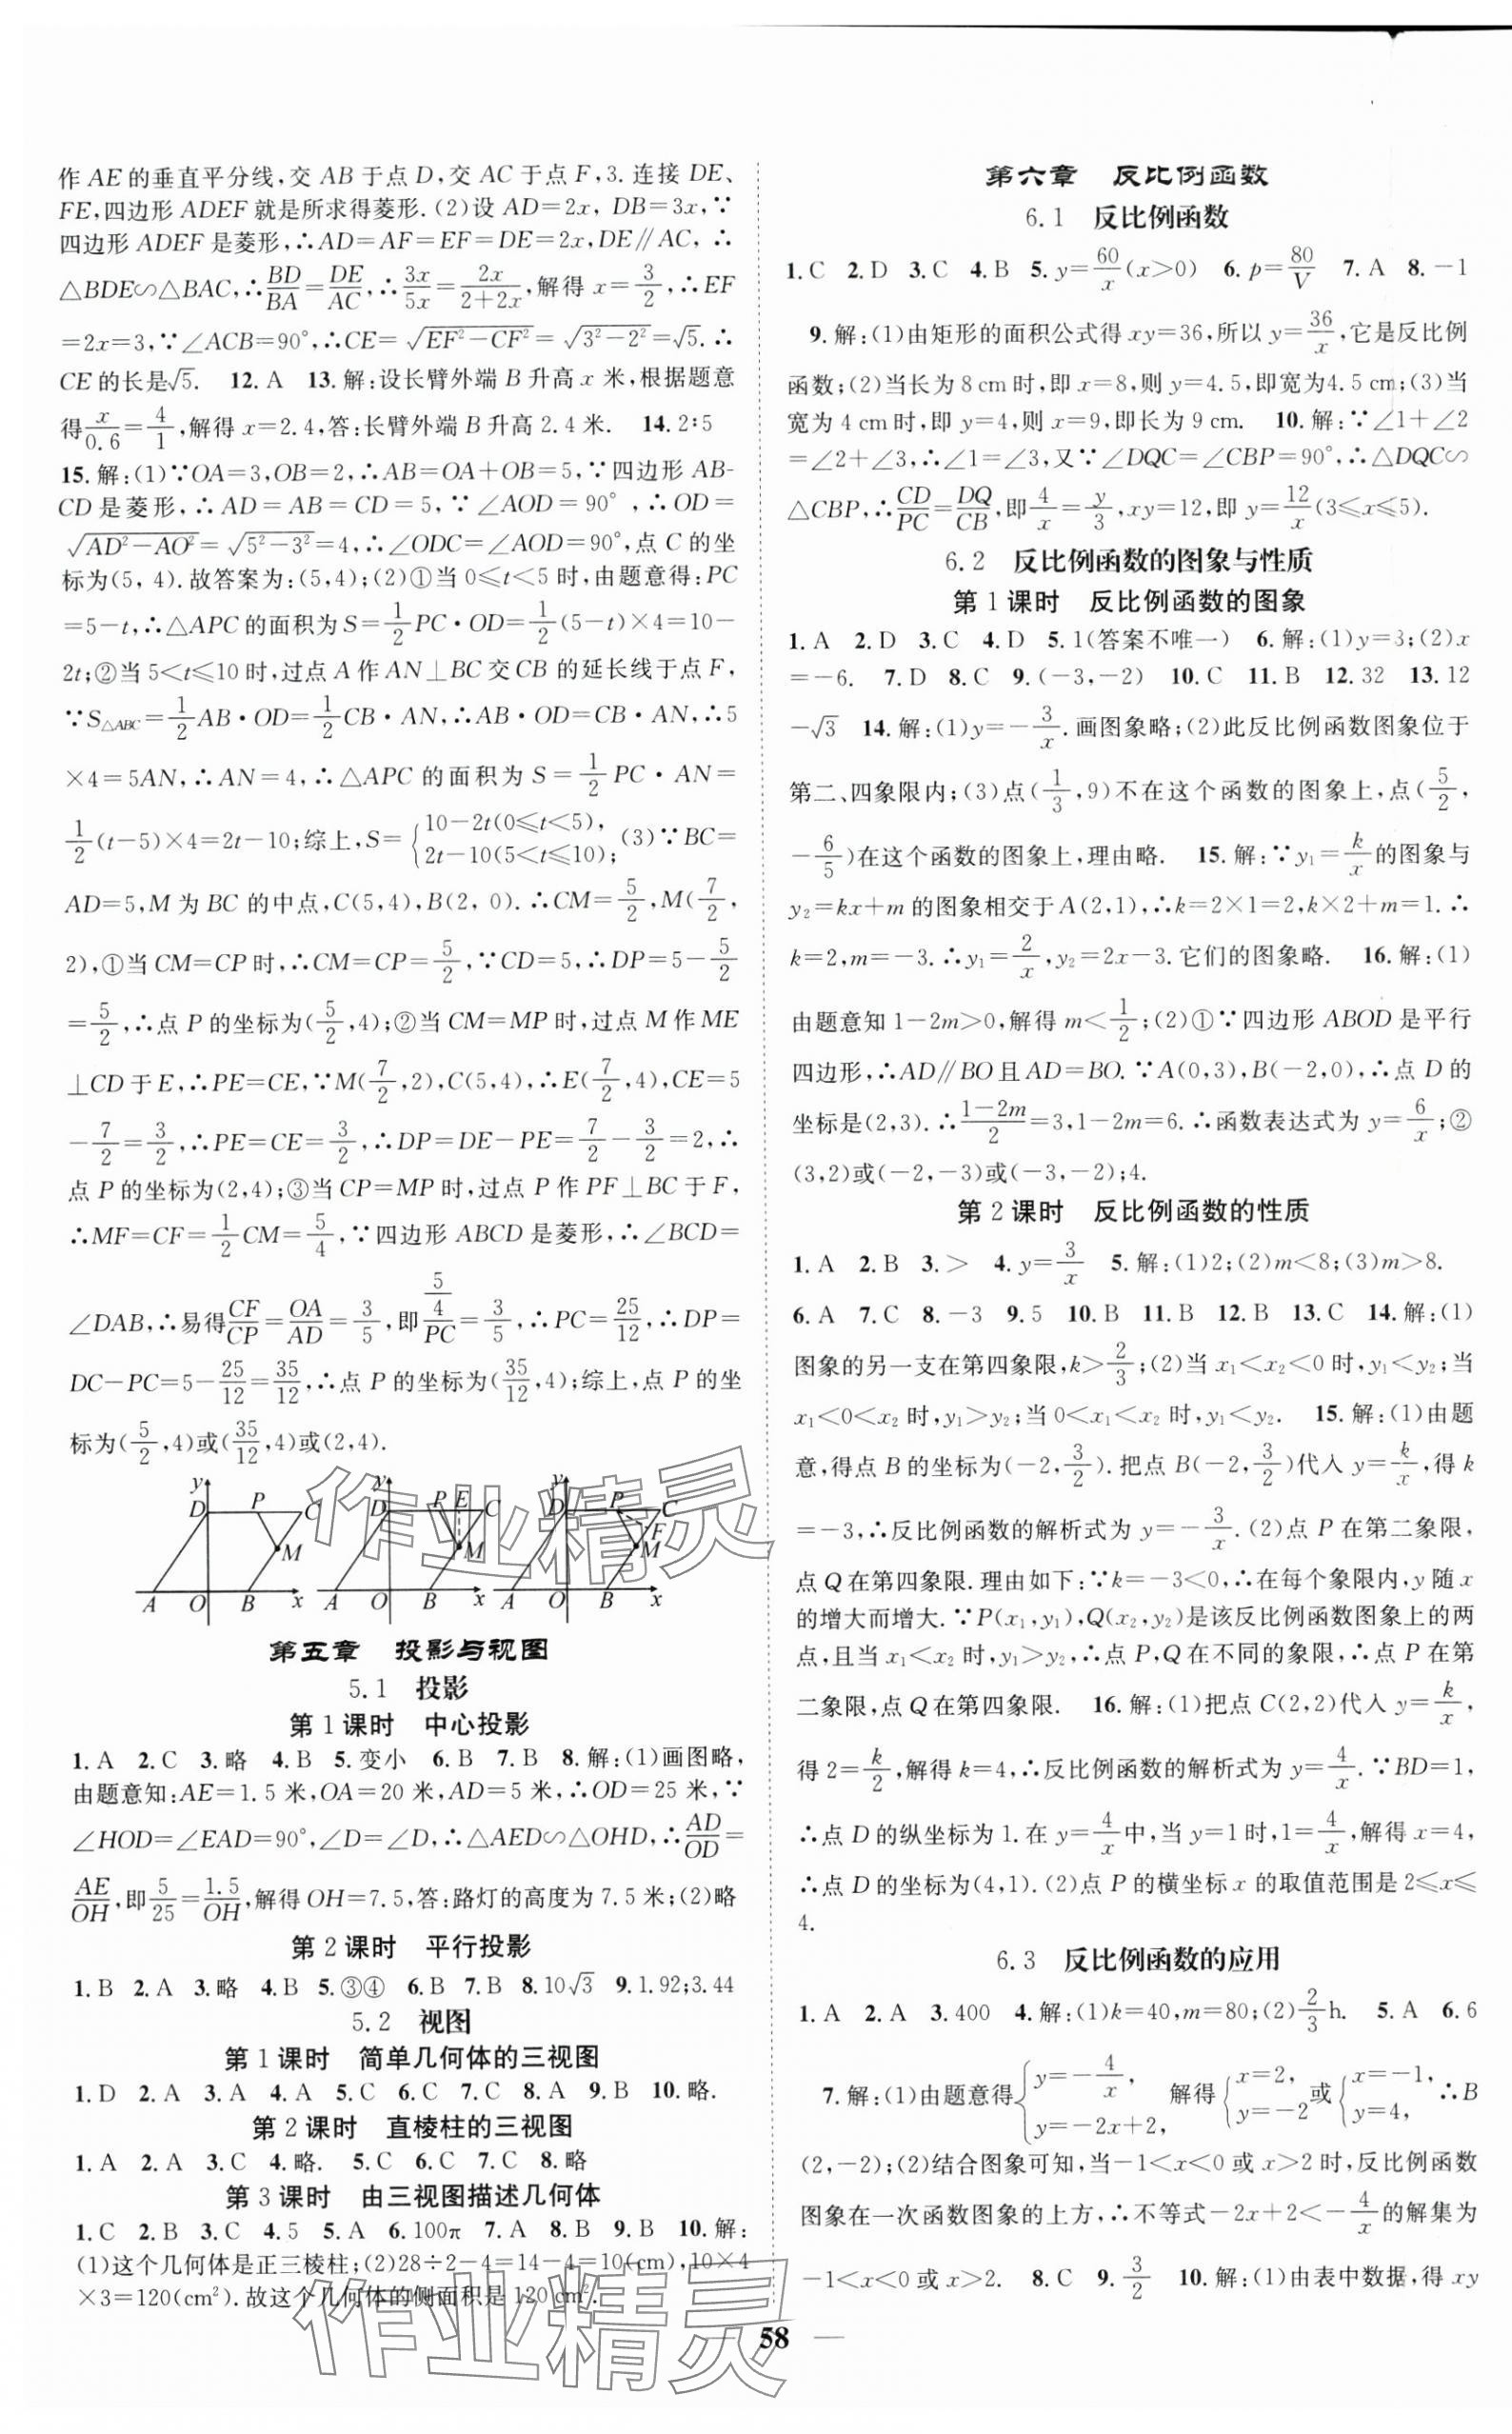 作 AE 的垂直平分线,交 AB 于点 D,交 AC 于点 F,3. 连接 DE、
FE,四边形 ADEF 就是所求得菱形.(2)设 AD=2x, DB=3x,∵
四边形 ADEF 是菱形,∴AD=AF=EF=DE=2x,DE∥AC, ∴
△BDE∽△BAC,∴BD/BA=DE/AC,∴3x/5x=2x/(2+2x),解得 x=3/2,∴EF
=2x=3,∵∠ACB=90°,∴CE=√(EF²-CF²)=√(3²-2²)=√5.∴
CE 的长是√5. 12. A 13. 解:设长臂外端 B 升高 x 米,根据题意
得x/0.6=4/1,解得 x=2.4,答:长臂外端 B 升高 2.4 米. 14. 2∶5
15. 解:(1)∵OA=3,OB=2,∴AB=OA+OB=5,∵四边形 AB-
CD 是菱形,∴AD=AB=CD=5,∵∠AOD=90°,∴OD=
√(AD²-AO²)=√(5²-3²)=4,∴∠ODC=∠AOD=90°,点 C 的坐
标为(5, 4).故答案为:(5,4);(2)①当 0⩽t<5 时,由题意得:PC
=5-t,∴△APC 的面积为 S=1/2PC·OD=1/2(5-t)×4=10-
2t;②当 5<t⩽10 时,过点 A 作 AN⊥BC 交 CB 的延长线于点 F,
∵S△ABC=1/2AB·OD=1/2CB·AN,∴AB·OD=CB·AN,∴5
×4=5AN,∴AN=4,∴△APC 的面积为 S=1/2PC·AN=
1/2(t-5)×4=2t-10;综上,S={10-2t(0⩽t<5), 2t-10(5<t⩽10);(3)∵BC=
AD=5,M 为 BC 的中点,C(5,4),B(2, 0).∴CM=5/2,M(7/2,
2),①当 CM=CP 时,∴CM=CP=5/2,∵CD=5,∴DP=5-5/2
=5/2,∴点 P 的坐标为(5/2,4);②当 CM=MP 时,过点 M 作 ME
⊥CD 于 E,∴PE=CE,∵M(7/2,2),C(5,4),∴E(7/2,4),CE=5
-7/2=3/2,∴PE=CE=3/2,∴DP=DE-PE=7/2-3/2=2,∴
点 P 的坐标为(2,4);③当 CP=MP 时,过点 P 作 PF⊥BC 于 F,
∴MF=CF=1/2CM=5/4,∵四边形 ABCD 是菱形,∴∠BCD=
∠DAB,∴易得CF/CP=OA/AD=3/5,即(5/4)/PC=3/5,∴PC=25/12,∴DP=
DC-PC=5-25/12=35/12,∴点 P 的坐标为(35/12,4);综上,点 P 的坐
标为(5/2,4)或(35/12,4)或(2,4).
y D P C M A O B x
y D P E C M A O B x
y D P C F M A O B x
第五章 投影与视图
5.1 投影
第 1 课时 中心投影
1. A 2. C 3. 略 4. B 5. 变小 6. B 7. B 8. 解:(1)画图略,
由题意知:AE=1.5 米,OA=20 米,AD=5 米,∴OD=25 米,∵
∠HOD=∠EAD=90°,∠D=∠D,∴△AED∽△OHD,∴AD/OD=
AE/OH,即5/25=1.5/OH,解得 OH=7.5,答:路灯的高度为 7.5 米;(2)略
第 2 课时 平行投影
1. B 2. A 3. 略 4. B 5. ③④ 6. B 7. B 8. 10√3 9. 1.92;3.44
5.2 视图
第 1 课时 简单几何体的三视图
1. D 2. A 3. A 4. A 5. C 6. C 7. C 8. A 9. B 10. 略.
第 2 课时 直棱柱的三视图
1. A 2. A 3. C 4. 略. 5. C 6. C 7. C 8. 略
第 3 课时 由三视图描述几何体
1. C 2. B 3. C 4. 5 5. A 6. 100π 7. A 8. B 9. B 10. 解:
(1)这个几何体是正三棱柱;(2)28÷2-4=14-4=10(cm),10×4
×3=120(cm²).故这个几何体的侧面积是 120 cm².
第六章 反比例函数
6.1 反比例函数
1. C 2. D 3. C 4. B 5. y=60/x(x>0) 6. p=80/V 7. A 8. -1
9. 解:(1)由矩形的面积公式得 xy=36,所以 y=36/x,它是反比例
函数;(2)当长为 8 cm 时,即 x=8,则 y=4.5,即宽为4.5 cm;(3)当
宽为 4 cm 时,即 y=4,则 x=9,即长为 9 cm. 10. 解:∵∠1+∠2
=∠2+∠3,∴∠1=∠3,又∵∠DQC=∠CBP=90°,∴△DQC∽
△CBP,∴CD/PC=DQ/CB,即4/x=y/3,xy=12,即 y=12/x(3⩽x⩽5).
6.2 反比例函数的图象与性质
第 1 课时 反比例函数的图象
1. A 2. D 3. C 4. D 5. 1(答案不唯一) 6. 解:(1)y=3;(2)x
=-6. 7. D 8. C 9. (-3,-2) 10. C 11. B 12. 32 13. 12
-√3 14. 解:(1)y=-3/x.画图象略;(2)此反比例函数图象位于
第二、四象限内;(3)点(1/3,9)不在这个函数的图象上,点(5/2,
-6/5)在这个函数的图象上,理由略. 15. 解:∵y₁=k/x的图象与
y₂=kx+m 的图象相交于 A(2,1),∴k=2×1=2,k×2+m=1.∴
k=2,m=-3.∴y₁=2/x,y₂=2x-3.它们的图象略. 16. 解:(1)
由题意知 1-2m>0,解得 m<1/2;(2)①∵四边形 ABOD 是平行
四边形,∴AD∥BO 且 AD=BO.∵A(0,3),B(-2,0),∴点 D 的
坐标是(2,3).∴(1-2m)/2=3,1-2m=6.∴函数表达式为 y=6/x;②
(3,2)或(-2,-3)或(-3,-2);4.
第 2 课时 反比例函数的性质
1. A 2. B 3. > 4. y=3/x 5. 解:(1)2;(2)m<8;(3)m>8.
6. A 7. C 8. -3 9. 5 10. B 11. B 12. B 13. C 14. 解:(1)
图象的另一支在第四象限,k>2/3;(2)当 x₁<x₂<0 时,y₁<y₂;当
x₁<0<x₂ 时,y₁>y₂;当 0<x₁<x₂ 时,y₁<y₂. 15. 解:(1)由题
意,得点 B 的坐标为(-2,3/2).把点 B(-2,3/2)代入 y=k/x,得 k
=-3,∴反比例函数的解析式为 y=-3/x.(2)点 P 在第二象限,
点 Q 在第四象限.理由如下:∵k=-3<0,∴在每个象限内,y 随 x
的增大而增大.∵P(x₁,y₁),Q(x₂,y₂)是该反比例函数图象上的两
点,且当 x₁<x₂ 时,y₁>y₂,∴点 P,Q 在不同的象限,∴点 P 在第
二象限,点 Q 在第四象限. 16. 解:(1)把点 C(2,2)代入 y=k/x,
得 2=k/2,解得 k=4,∴反比例函数的解析式为 y=4/x.∵BD=1,
∴点 D 的纵坐标为 1.在 y=4/x中,当 y=1时,1=4/x,解得 x=4,
∴点 D 的坐标为(4,1).(2)点 P 的横坐标 x 的取值范围是 2⩽x⩽
4.
6.3 反比例函数的应用
1. A 2. A 3. 400 4. 解:(1)k=40,m=80;(2)2/3h. 5. A 6. 6
7. 解:(1)由题意得{y=-4/x, y=-2x+2, 解得{x=2, y=-2 或{x=-1, y=4, ∴B
(2,-2);(2)结合图象可知,当-1<x<0 或 x>2 时,反比例函数
图象在一次函数图象的上方,∴不等式-2x+2<-4/x的解集为
-1<x<0 或 x>2. 8. C 9. 3/2 10. 解:(1)由表中数据,得 xy
58
作业精灵
作业精灵